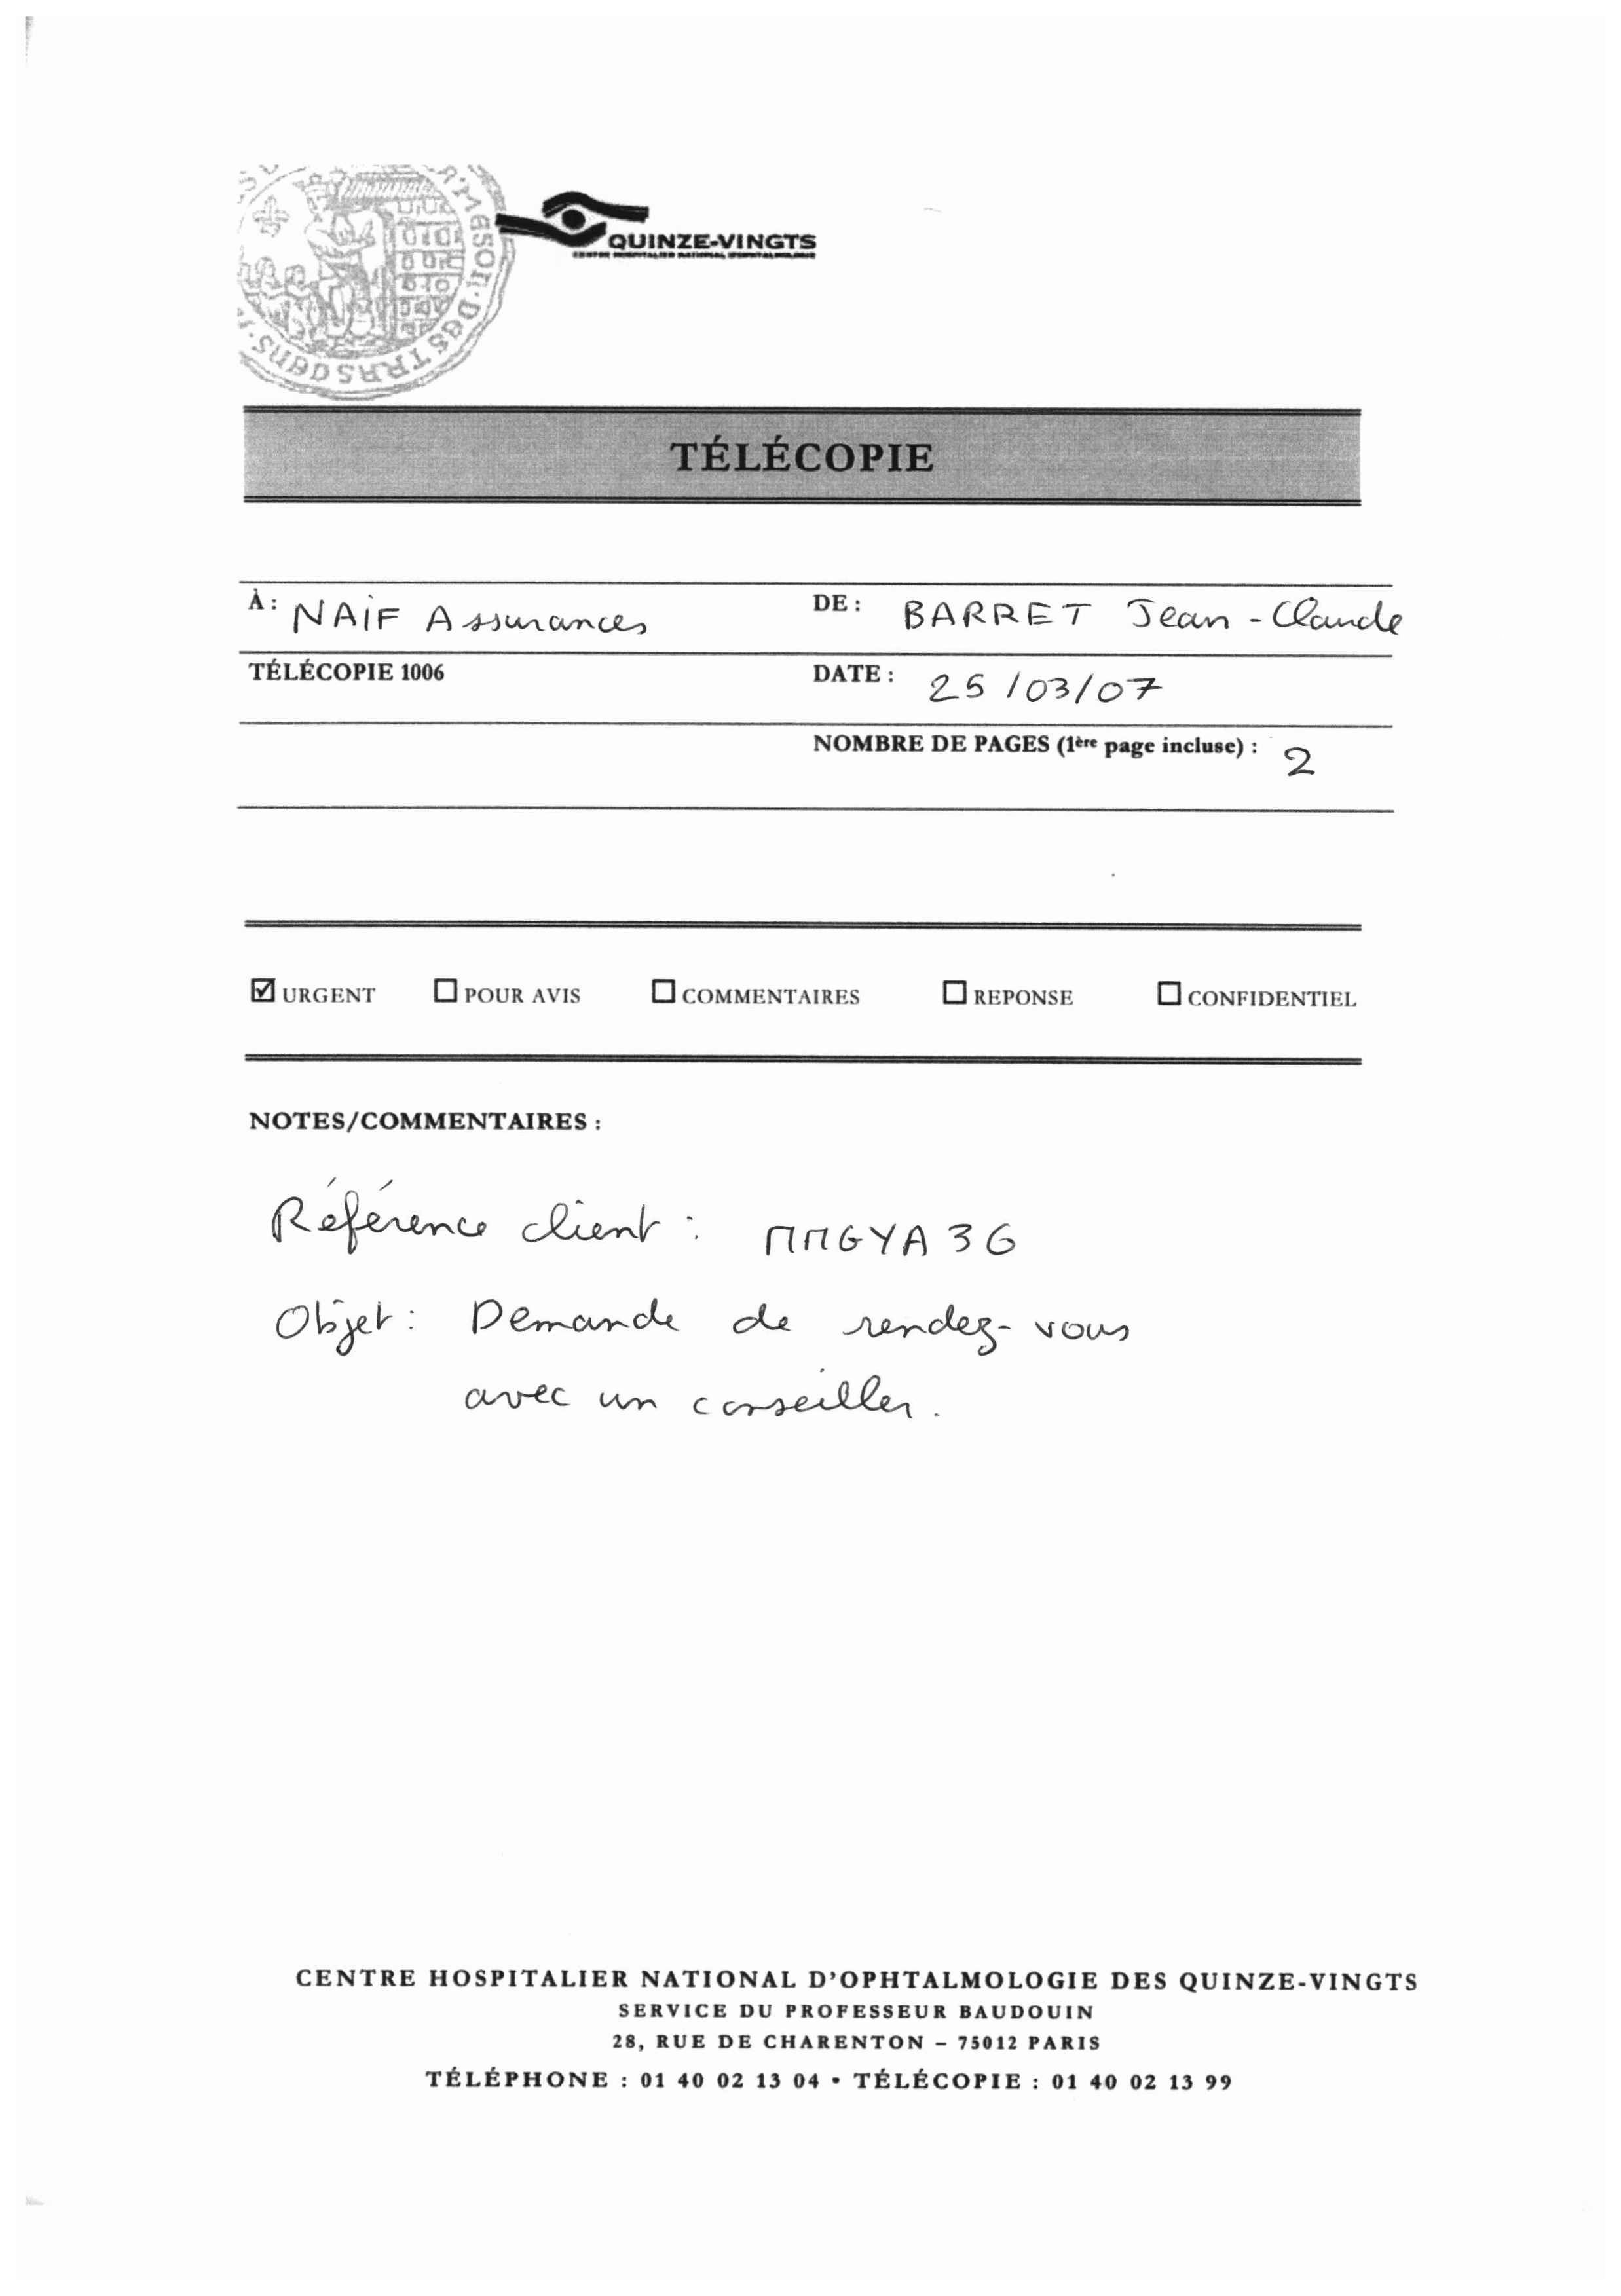 QUINZE-VINGTS
CENTRE HOSPITALIER NATIONAL D'OPHTALMOLOGIE
TÉLÉCOPIE
À : NAIF Assurances DE : BARRET Jean-Claude
TÉLÉCOPIE 1006 DATE : 25/03/07
NOMBRE DE PAGES (1ère page incluse) : 2
☑ URGENT ☐ POUR AVIS ☐ COMMENTAIRES ☐ REPONSE ☐ CONFIDENTIEL
NOTES/COMMENTAIRES :
Référence client : MMGYA36
Objet : Demande de rendez-vous
avec un conseiller.
CENTRE HOSPITALIER NATIONAL D'OPHTALMOLOGIE DES QUINZE-VINGTS
SERVICE DU PROFESSEUR BAUDOUIN
28, RUE DE CHARENTON – 75012 PARIS
TÉLÉPHONE : 01 40 02 13 04 • TÉLÉCOPIE : 01 40 02 13 99